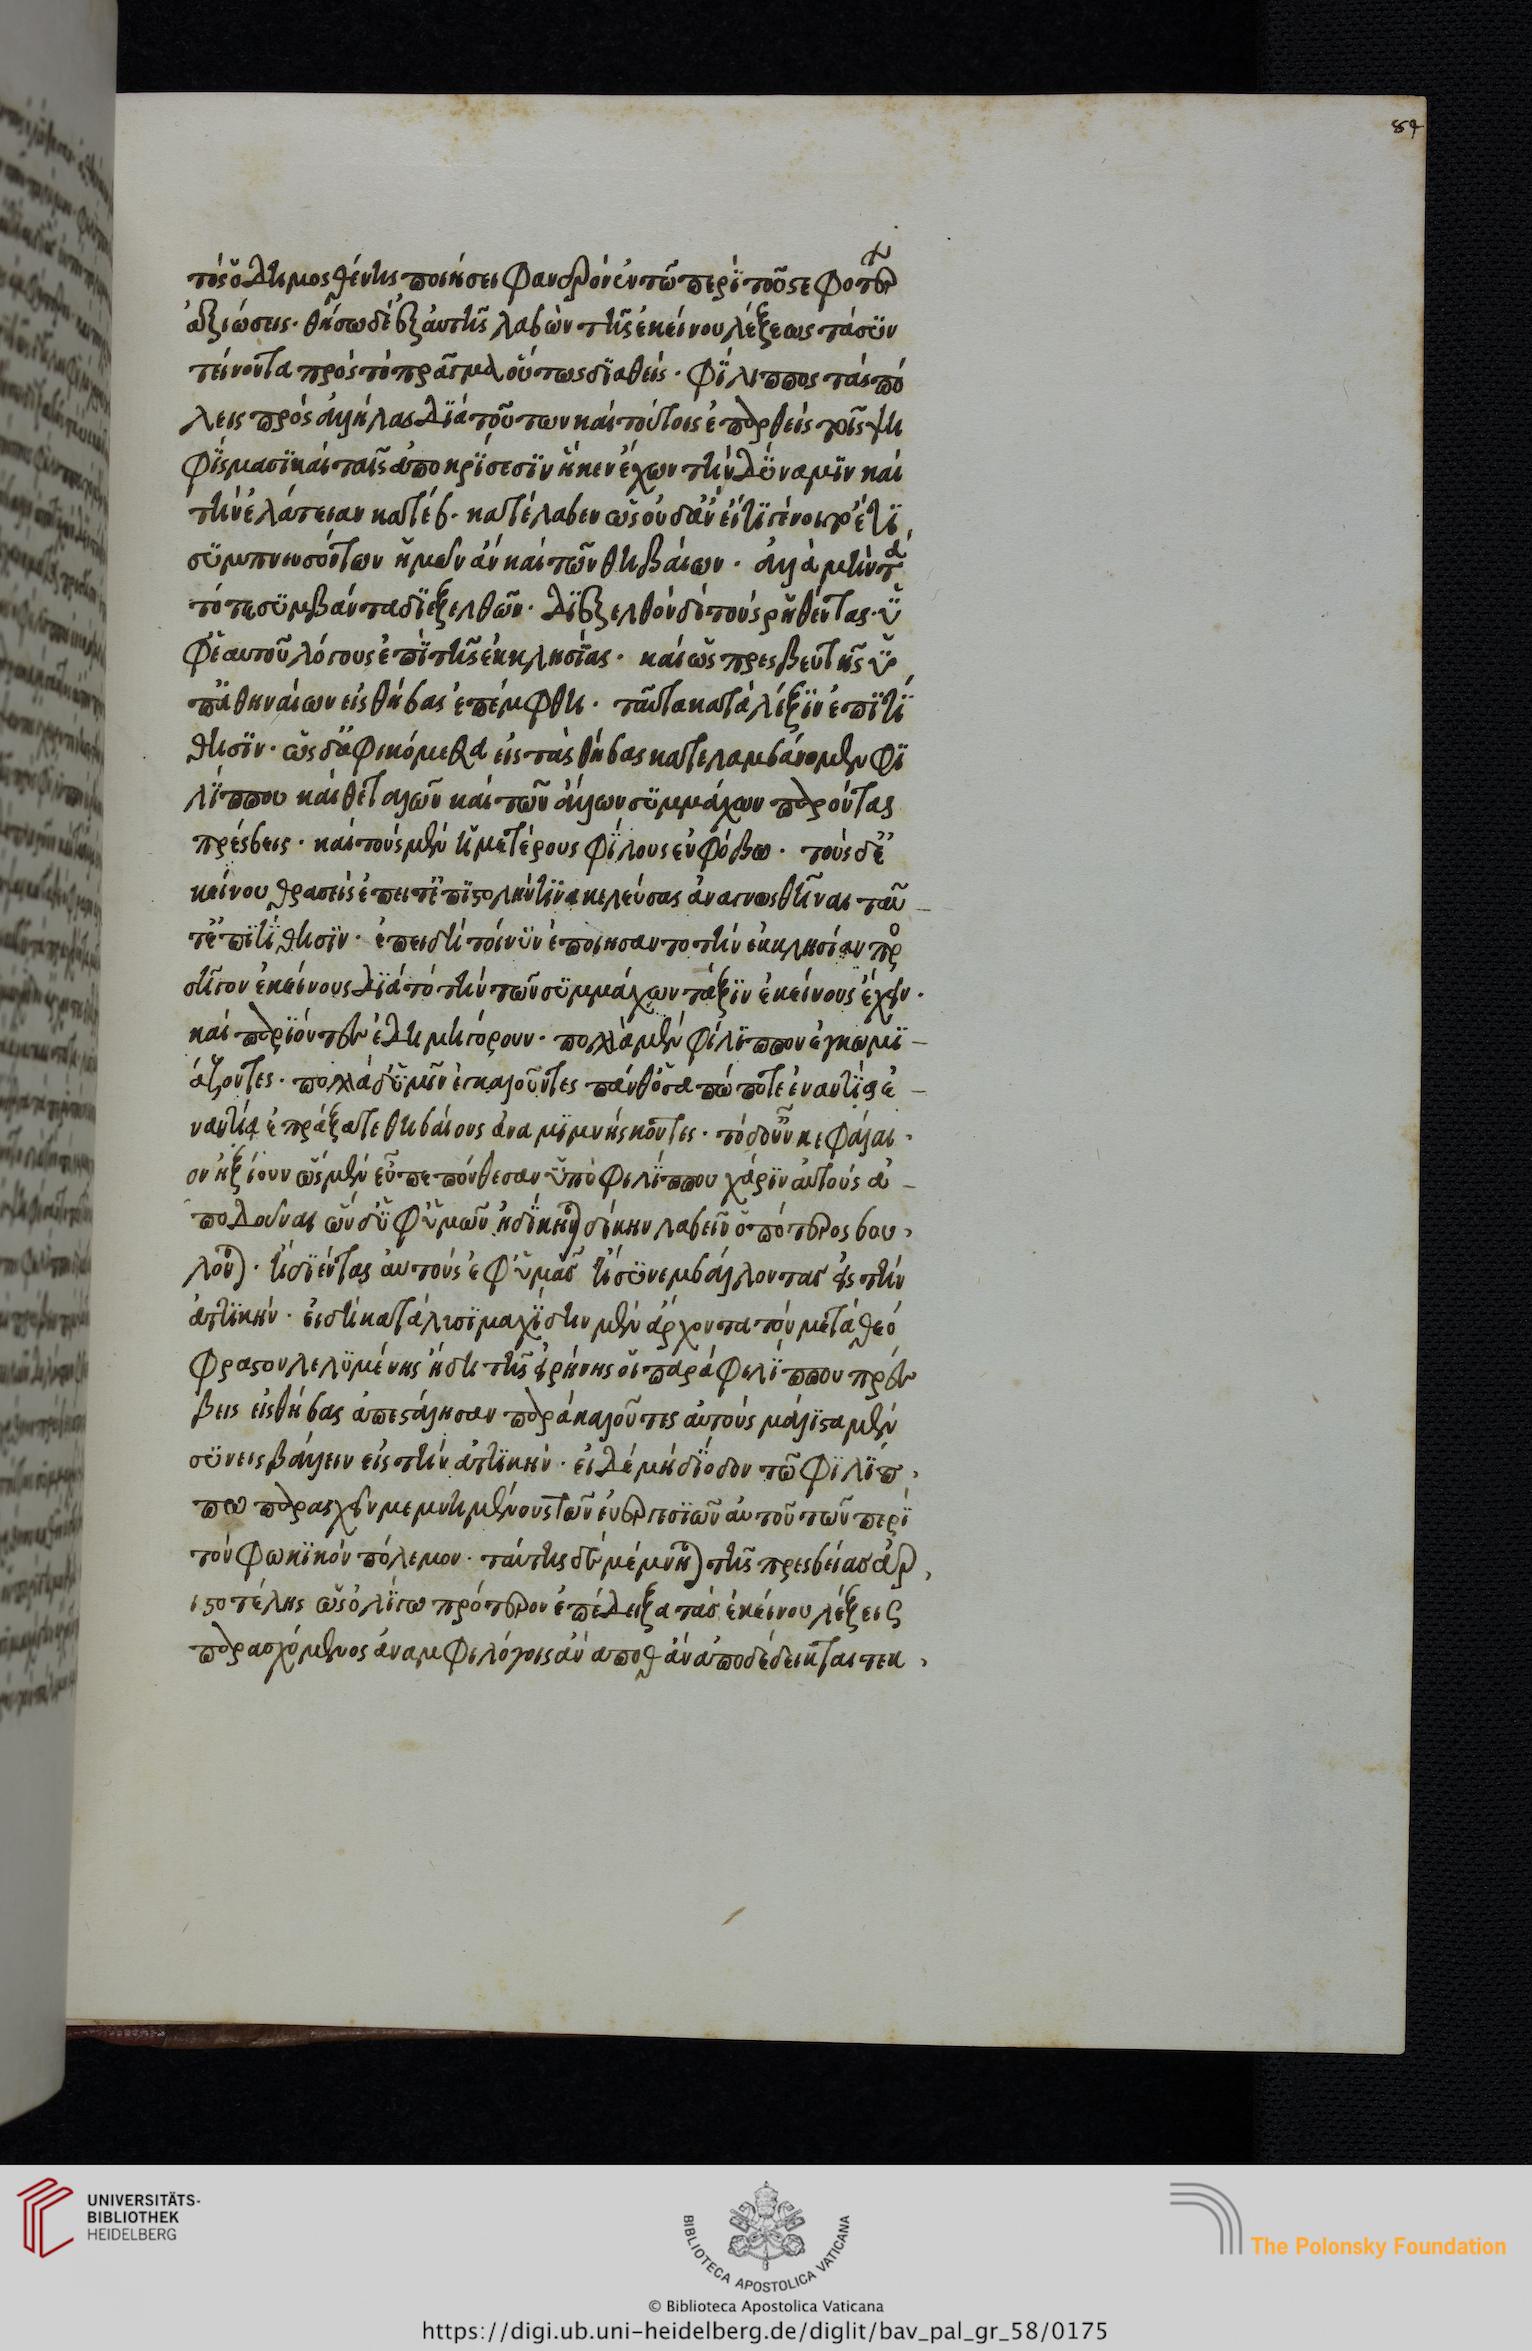 84
τὸς ὁ Δημοσθένης ποιήσει φανερὸν ἐν τῶ περὶ τοῦ στεφάνου
ἀξιώσεις· θήσω δὲ ἐξ αὐτῆς λαβὼν τῆς ἐκείνου λέξεως τὰ σϋν
τείνοντα πρὸς τὸ πρᾶγμα οὕτως διαθεὶς· Φίλιππος τὰς πό
λεις πρὸς ἀλλήλας διὰ τούτων καὶ τούτοις ἐπαρθεὶς τοῖς ψη
φΐσμασϊ καὶ ταῖς ἀποκρΐσεσϊν ἧκεν ἔχων τὴν δύναμϊν καὶ
τὴν ἐλάτειαν κατέ β· κατέλαβεν ὡς οὐδ' ἂν εἴ τϊ γένοιτ' ἔτϊ
σϋμπνευσόντων ἡμῶν ἂν καὶ τῶν θηβαίων· ἀλλὰ μὴν τὰ
τότε σϋμβάντα δϊεξελθῶν· δϊεξελθὸν δὲ τοὺς ῥηθέντας ὑ
φ' ἑαυτοῦ λόγους ἐπὶ τῆς ἐκκλησΐας· καὶ ὡς πρεσβευτὴς ὑ
π' ἀθηναίων εἰς θήβας ἐπέμφθη· ταῦτα κατὰ λέξϊν ἐπϊτί
θησϊν· ὡς δ' ἀφικόμεθα εἰς τὰς θήβας κατελαμβάνομεν φϊ
λΐππου καὶ θετταλῶν καὶ τῶν ἄλλων σϋμμάχων παρόντας
πρέσβεις· καὶ τοὺς μὲν ἡμετέρους φΐλους ἐν φόβω· τοὺς δ' ἐ
κείνου θρασεῖς ἔπειτ' ἐπϊστολήν τϊνα κελεύσας ἀναγνωσθῆναι ταῦ
τ' ἐπϊτΐθησϊν· ἐπειδὴ τοίνϋν ἐποιήσαντο τὴν ἐκκλησίαν προ
σῆγον ἐκείνους δϊὰ τὸ τὴν τῶν σϋμμάχων τάξϊν ἐκείνους ἔχειν·
καὶ παρϊόντες ἐδημηγόρουν· πολλὰ μὲν φίλϊππον ἐγκωμϊ
άζοντες· πολλὰ δ' ὑμῖν ἐγκαλοῦντες πάνθ' ὅσα πώποτε ἐναντΐα ἐ
ναντία ἐπράξατε θηβαίους ἀναμϊμνήσκοντες· τὸ δ' οὖν κεφάλαι
ον ἠξίουν ὡς μὲν εὖ πεπόνθεσαν ὑπὸ φιλΐππου χάρϊν αὐτοὺς ἀ
ποδοῦναι ὧν δ' ὑφ' ὑμῶν ἠδίκηνται δίκην λαβεῖν ὁποτέρως βού
λονται· ἢ δϊέντας αὐτοὺς ἐφ' ὑμᾶς ἢ σϋνεμβάλλοντας εἰς τὴν
ἀττϊκήν· εἰ δὴ κατὰ λυσϊμαχΐδην μὲν ἄρχοντα τὸν μετὰ θεό
φραστον λελϋμένης ἤδη τῆς εἰρήνης οἱ παρὰ φιλΐππου πρέσ
βεις εἰς θήβας ἀπεστάλησαν παρακαλοῦντες αὐτοὺς μάλϊστα μὲν
σϋνεισβάλλειν εἰς τὴν ἀττϊκήν· εἰ δὲ μὴ δϊόδον τῶ φϊλΐπ
πω παρασχεῖν μεμνημένους τῶν εὐεργεσϊῶν αὐτοῦ τῶν περὶ
τὸν φωκϊκὸν πόλεμον· ταύτης δὲ μέμνηται τῆς πρεσβείας ἀρ
ιστοτέλης ὡς ὀλΐγω πρότερον ἐπέδειξα τὰς ἐκείνου λέξεις
παρασχόμενος ἀναμφιλόγοις ἂν ἀποθ ἂν ἀποδέδεικται τεκ
UNIVERSITÄTS-
BIBLIOTHEK
HEIDELBERG
BIBLIOTECA APOSTOLICA VATICANA
The Polonsky Foundation
© Biblioteca Apostolica Vaticana
https://digi.ub.uni-heidelberg.de/diglit/bav_pal_gr_58/0175